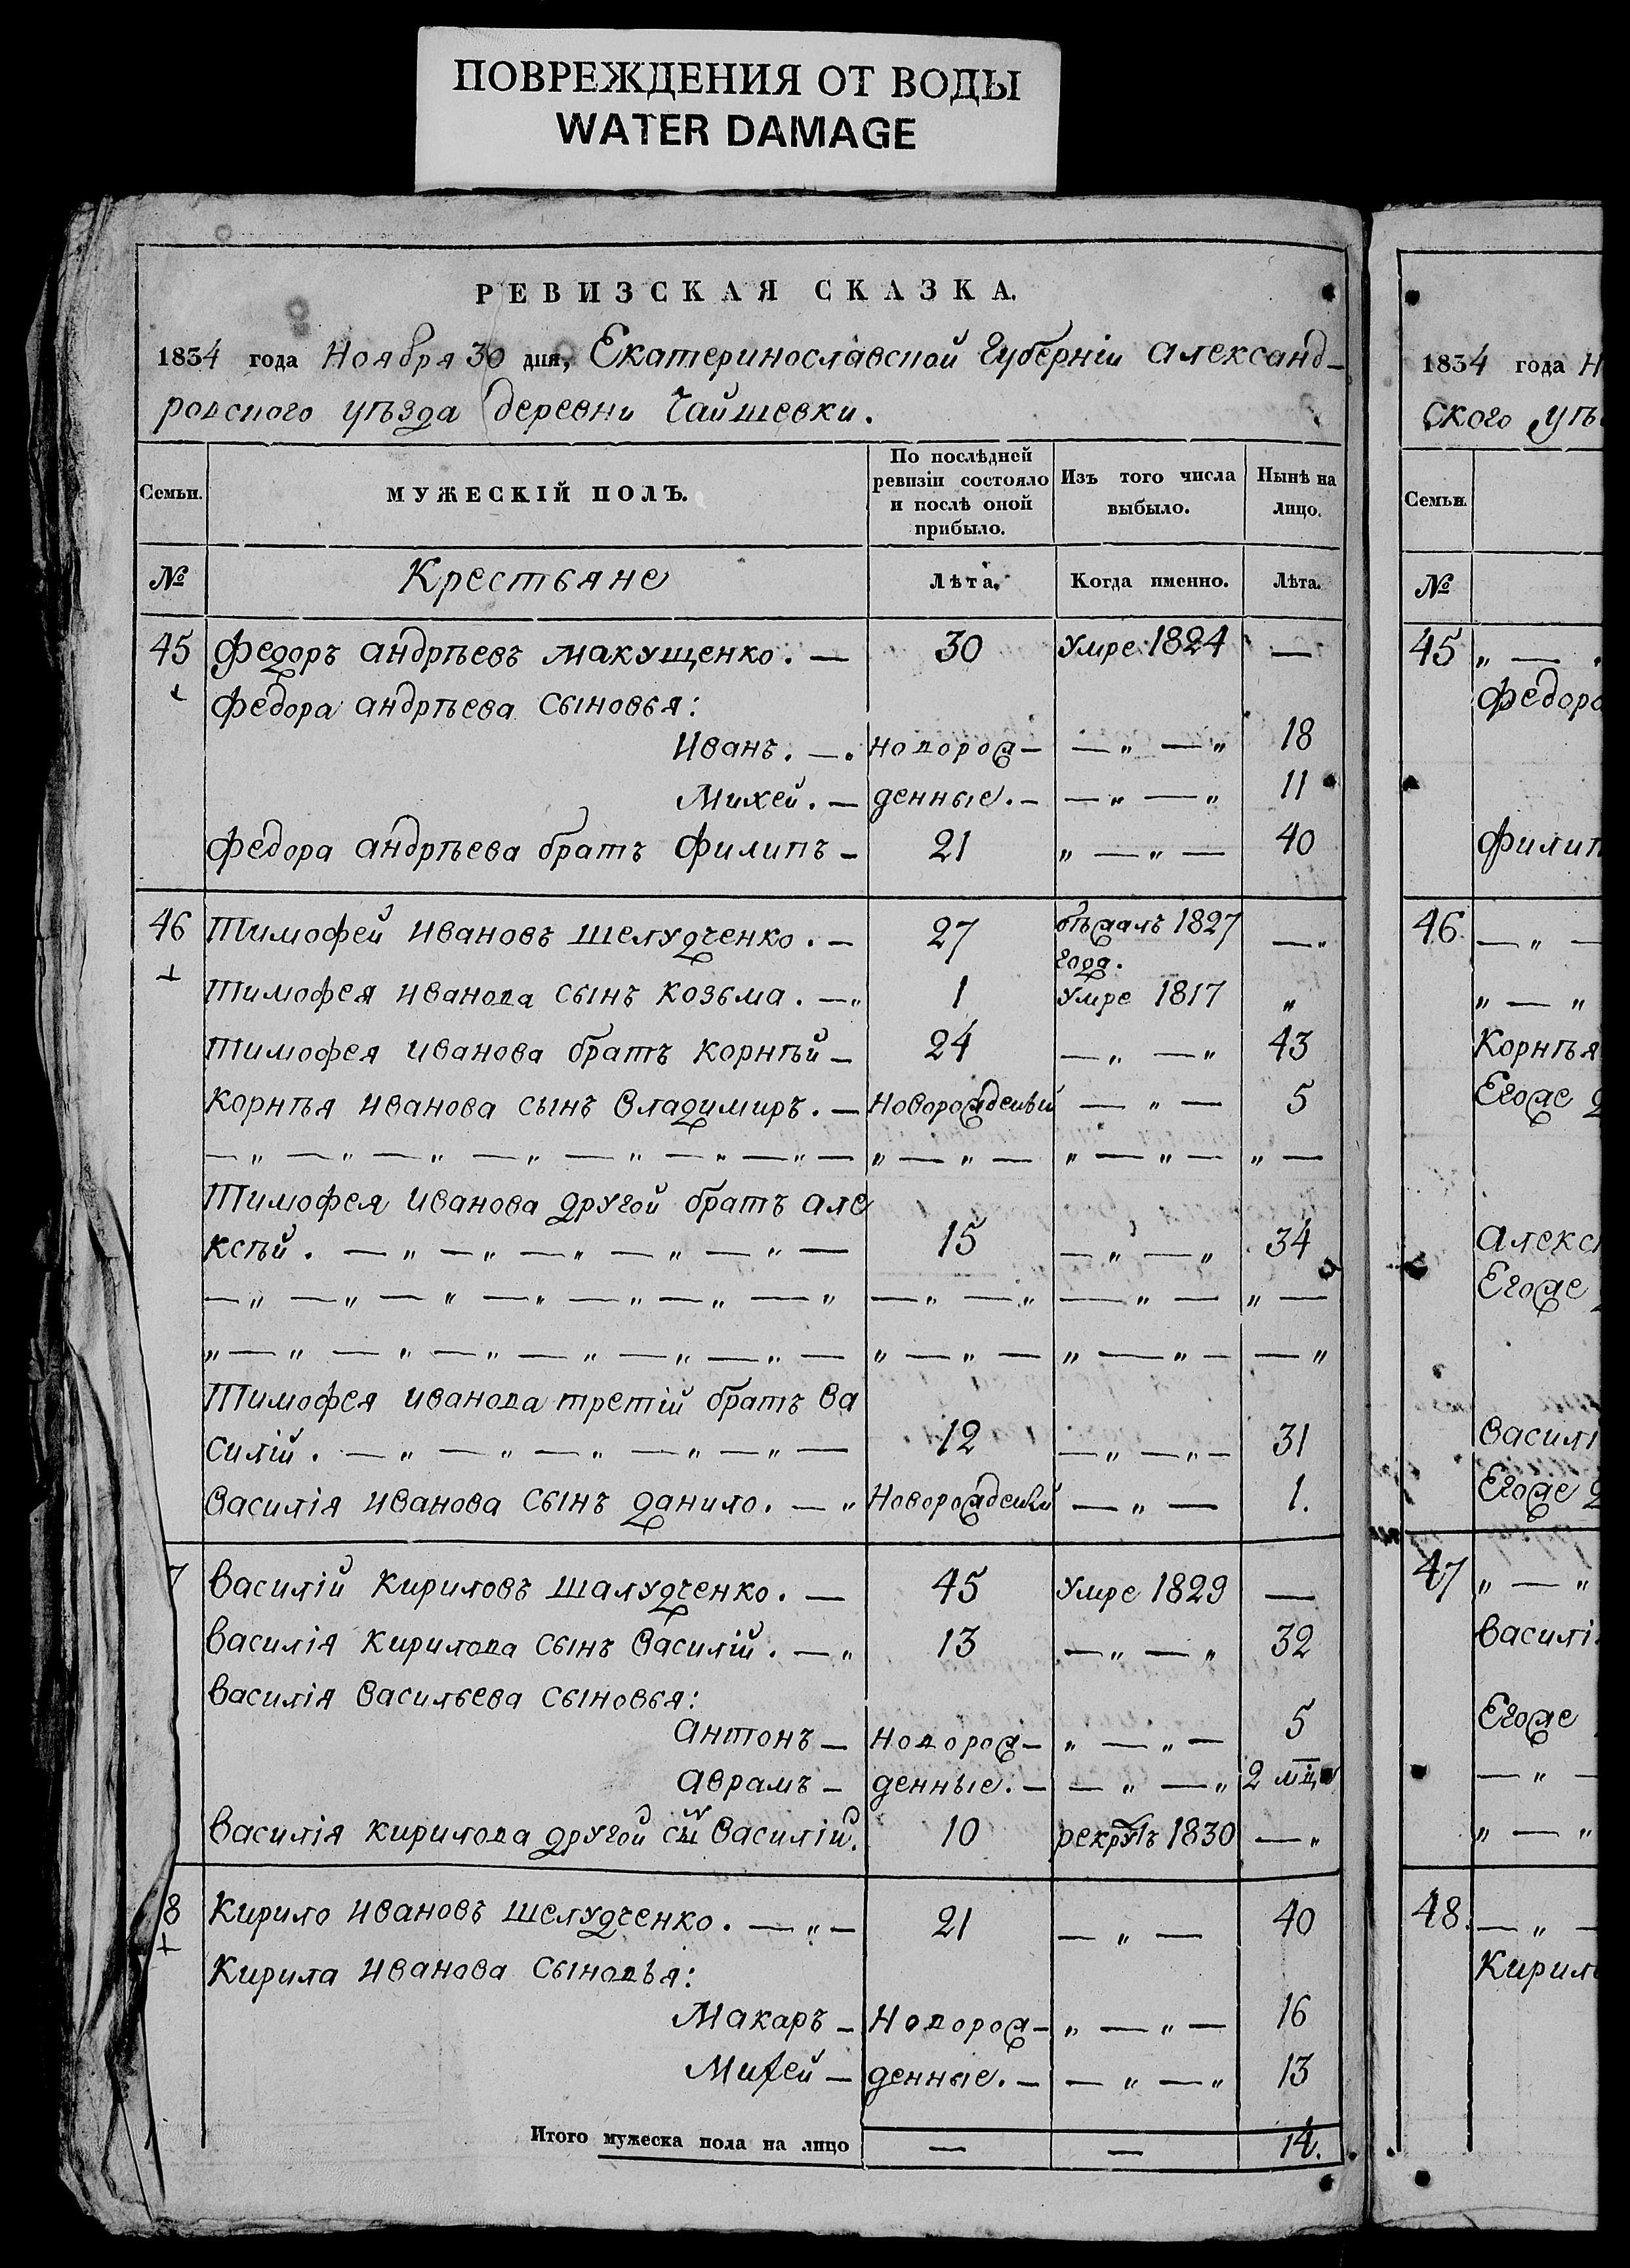 ПОВРЕЖДЕНИЯ ОТ ВОДЫ
WATER DAMAGE
РЕВИЗСКАЯ СКАЗКА.
1834 года Ноября 30 дня, Екатеринославской Губерніи Александ-
ровского уѣзда деревни Чайшевки.
Семьи. МУЖЕСКІЙ ПОЛЪ. По послѣдней ревизіи состояло и послѣ оной прибыло. Изъ того числа выбыло. Нынѣ на лицо.
№ Крестьяне Лѣта. Когда именно. Лѣта.
45 Федоръ Андрѣевъ Макущенко. — 30 Умре 1824 —
Федора Андрѣева сыновья:
Иванъ. — „ Новорож- — „ — „ 18
Михей. — денные. — — „ — „ 11
Федора Андрѣева братъ Филипъ — 21 „ — „ — 40
46 Тимофей Ивановъ Шелудченко. — 27 бѣжалъ 1827 — „
года.
Тимофея Иванова сынъ Козьма. — „ 1 Умре 1817 „
Тимофея Иванова братъ Корнѣй — 24 — „ — „ 43
Корнѣя Иванова сынъ Владимиръ. — Новорожденый — „ — 5
— „ — „ — „ — „ — „ — „ — „ — „ — „ — „ — „ — „ —
Тимофея Иванова другой братъ Але
ксѣй. — „ — „ — „ — „ — „ — 15 — „ — „ 34
— „ — „ — „ — „ — „ — „ — „ — „ — „ — „ — „ —
„ — „ — „ — „ — „ — „ — „ — „ — „ — „ — „ — — „
Тимофея Иванова третій братъ Ва
силій. — „ — „ — „ — „ — „ — 12 — „ — „ — 31
Василія Иванова сынъ Данило. — „ Новорожденый — „ — 1.
7 Василій Кириловъ Шалудченко. — 45 Умре 1829 —
Василія Кирилова сынъ Василій. — „ 13 — „ — „ 32
Василія Васильева сыновья:
Антонъ — Новорож- „ — „ — 5
Аврамъ — денные. — — „ — „ 2 мц
Василія Кирилова другой сы͞н Василій. 10 рекрутъ 1830 — „
8 Кирило Ивановъ Шелудченко. — „ — 21 — „ — 40
Кирила Иванова сыновья:
Макаръ — Новорож- „ — „ — 16
Михей — денные. — — „ — „ 13
Итого мужеска пола на лицо — — 14.
1834 года Н
ского уѣ
Семьи.
№
45 „ —
Федора
Филип
46. — „ —
„ — „
Корнѣя
Егоже д
Алекс
Егоже
Васил
Егоже д
47 „ — „
Василі
Егоже
— „ —
„ — „
48. — „ —
Кирил